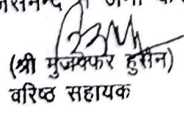 (श्री मुजफ्फर हुसैन)
वरिष्ठ सहायक